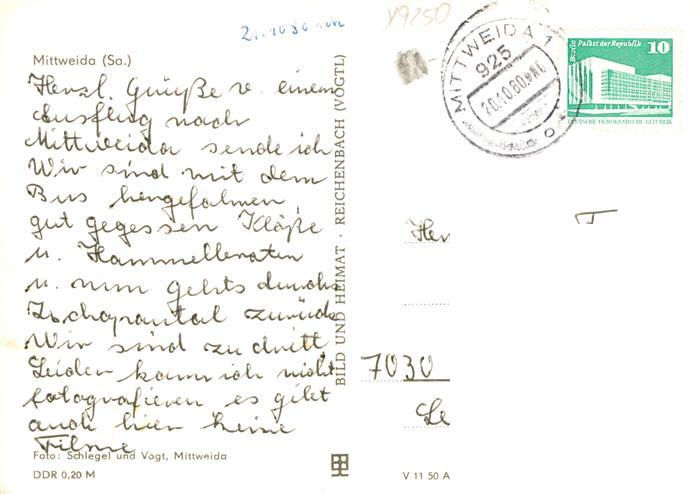 21.10.80
V9250
Mittweida (Sa.)
Herzl. Grüße v. einem
Ausflug nach
Mittweida sende ich
Wir sind mit dem
Bus hergefahren,
gut gegessen Klöße
u. Hammelbraten
u. nun gehts durchs
Zschopautal zurück
Wir sind zu dritt.
Leider kann ich nicht
fotografieren es gibt
auch hier keine
Filme
Foto: Schlegel und Vogt, Mittweida
DDR 0,20 M
BILD UND HEIMAT · REICHENBACH (VOGTL)
MITTWEIDA 1
925
20.10.80
Berlin Palast der Republik 10
DEUTSCHE DEMOKRATISCHE REPUBLIK
Her
7030
Le
V 11 50 A